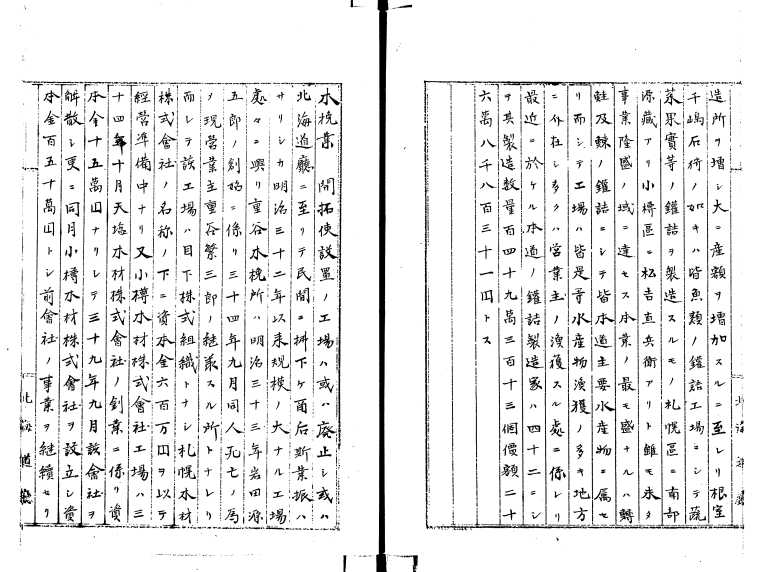 造所ヲ増シ大ニ産額ヲ増加スルニ至レリ根室
千嶋石狩ノ如キハ皆魚類ノ鑵詰工場ニシテ蔬
菜果實等ノ鑵詰ヲ製造スルモノ札幌區ニ南部
源蔵アリ小樽區ニ松吉直兵衛アリト雖モ未タ
事業隆盛ノ域ニ達セス本業ノ最モ盛ナルハ鱒
鮭及鰊ノ鑵詰ニシテ皆本道主要水産物ニ属セ
リ而シテ工場ハ皆是等水産物漁獲ノ多キ地方
ニ介在シ多クハ営業主ノ漁獲スル處ニ係レリ
最近ニ於ケル本道ノ鑵詰製造家ハ四十二ニシ
テ其製造数量百四十九萬三百十三個價額二十
六萬八千八百三十一円トス
北海道廳
木挽業 開拓使設置ノ工場ハ或ハ廃止シ或ハ
北海道廳ニ至リテ民間ニ拂下ケ爾后斯業振ハ
サリシカ明治三十二年以来規模ノ大ナル工場
處々ニ興リ重谷木挽所ハ明治三十三年岩田源
五郎ノ創始ニ係リ三十四年九月同人死亡ノ為
ノ現営業主重谷繁三郎ノ継承スル所トナレリ
而シテ該工場ハ目下株式組織トナシ札幌木材
株式會社ノ名称ノ下ニ資本金六百万円ヲ以テ
經営準備中ナリ又小樽木材株式會社工場ハ三
十四年十月天塩木材株式會社ノ創業ニ係リ資
本金十五萬円ナリシテ三十九年九月該會社ヲ
解散シ更ニ同月小樽木材株式會社ヲ設立シ資
本金百五十萬円トシ前會社ノ事業ヲ継續セリ
北海道廳